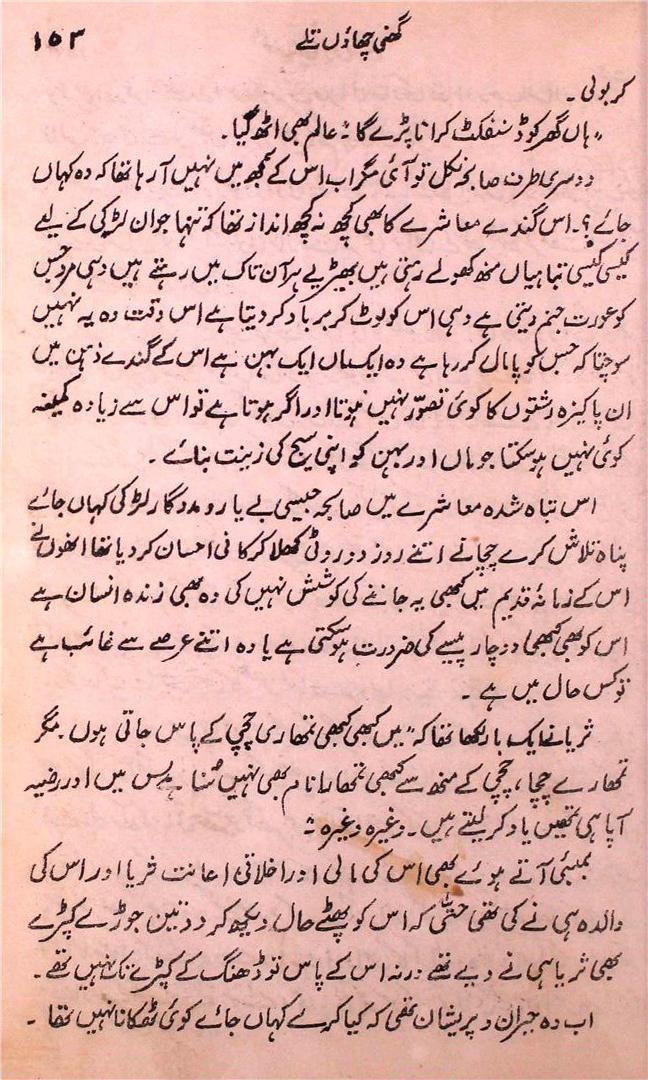 گھنی چھاؤں تلے
۱۵۳
کر بولی۔
"ہاں گھر کو ڈسنفکٹ کرانا پڑے گا" عالم بھی اٹھ گیا۔
دوسری طرف صابحہ نکل تو آئی مگر اب اس کے سمجھ میں نہیں آرہا تھا کہ وہ کہاں
جائے؟۔ اس گندے معاشرے کا بھی کچھ نہ کچھ انداز تھا کہ تنہا جوان لڑکی کے لیے
کیسی کیسی تباہیاں منھ کھولے رہتی ہیں بھیڑیے ہر آن تاک میں رہتے ہیں وہی مرد جس
کو عورت جنم دیتی ہے وہی اس کو لوٹ کر برباد کر دیتا ہے اس وقت وہ یہ نہیں
سوچتا کہ جس کو پامال کر رہا ہے وہ ایک ماں ایک بہن ہے اس کے گندے ذہن میں
ان پاکیزہ رشتوں کا کوئی تصوّر نہیں ہوتا اور اگر ہوتا ہے تو اس سے زیادہ کمینہ
کوئی نہیں ہو سکتا جو ماں اور بہن کو اپنی سیج کی زینت بنائے۔
اس تباہ شدہ معاشرے میں صابحہ جیسی بے یار و مددگار لڑکی کہاں جائے
پناہ تلاش کرے چچا نے اتنے روز دو روٹی کھلا کر کافی احسان کر دیا تھا انھوں نے
اس کے زمانۂ قدیم میں کبھی یہ جاننے کی کوشش نہیں کی وہ بھی زندہ انسان ہے
اس کو بھی کبھی دو چار پیسے کی ضرورت ہو سکتی ہے یا وہ اتنے عرصے سے غائب ہے
تو کس حال میں ہے۔
ثریا نے ایک بار لکھا تھا کہ "میں کبھی کبھی تمھاری چچی کے پاس جاتی ہوں۔ مگر
تمھارے چچا، چچی کے منھ سے کبھی تمھارا نام بھی نہیں سُنا ہے بس میں اور رضیہ
آپا ہی تمھیں یاد کر لیتے ہیں۔ وغیرہ وغیرہ"
بمبئی آتے ہوئے بھی اس کی مالی اور اخلاقی اعانت ثریا اور اس کی
والدہ ہی نے کی تھی حتیٰ کہ اس کو پھٹے حال دیکھ کر دو تین جوڑے کپڑے
بھی ثریا ہی نے دیے تھے ورنہ اس کے پاس تو ڈھنگ کے کپڑے تک نہیں تھے۔
اب وہ حیران و پریشان تھی کہ کیا کرے کہاں جائے کوئی ٹھکانا نہیں تھا۔